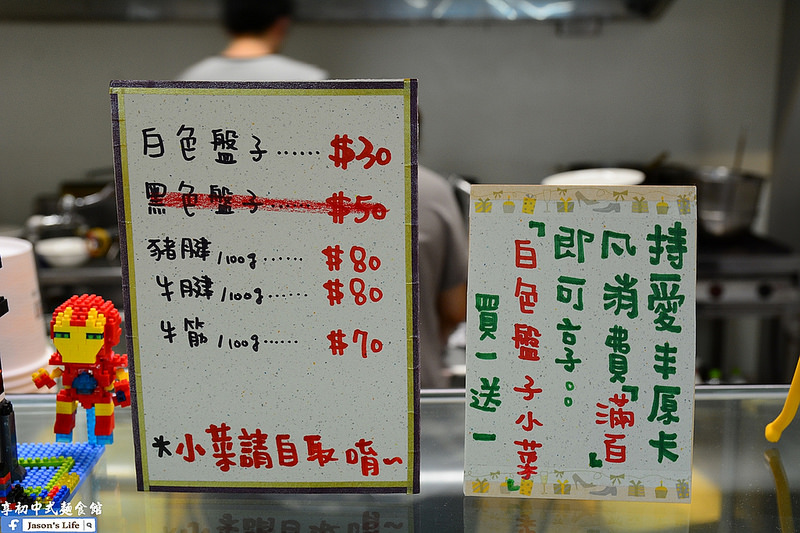 白色盤子......$30
黑色盤子 $50
豬腱/100g......$80
牛腱/100g......$80
牛筋/100g......$70
*小菜請自取唷~
持愛丰原卡
凡消費『滿百』
即可享。。
『白色盤子小菜』
買一送一
享初中式麵食館
Jason's Life